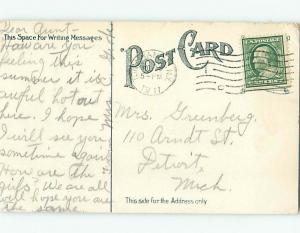 Dear Aunt-
This Space for Writing Messages
How are you
feeling this
summer it is
awful hot out
here. I hope
I will see you
sometime again.
How are the
girls We are all
well hope you are
the same.
POST CARD
5-PM
1911
Mrs. Grunberg
110 Arndt St.
Detroit,
Mich.
This side for the Address only